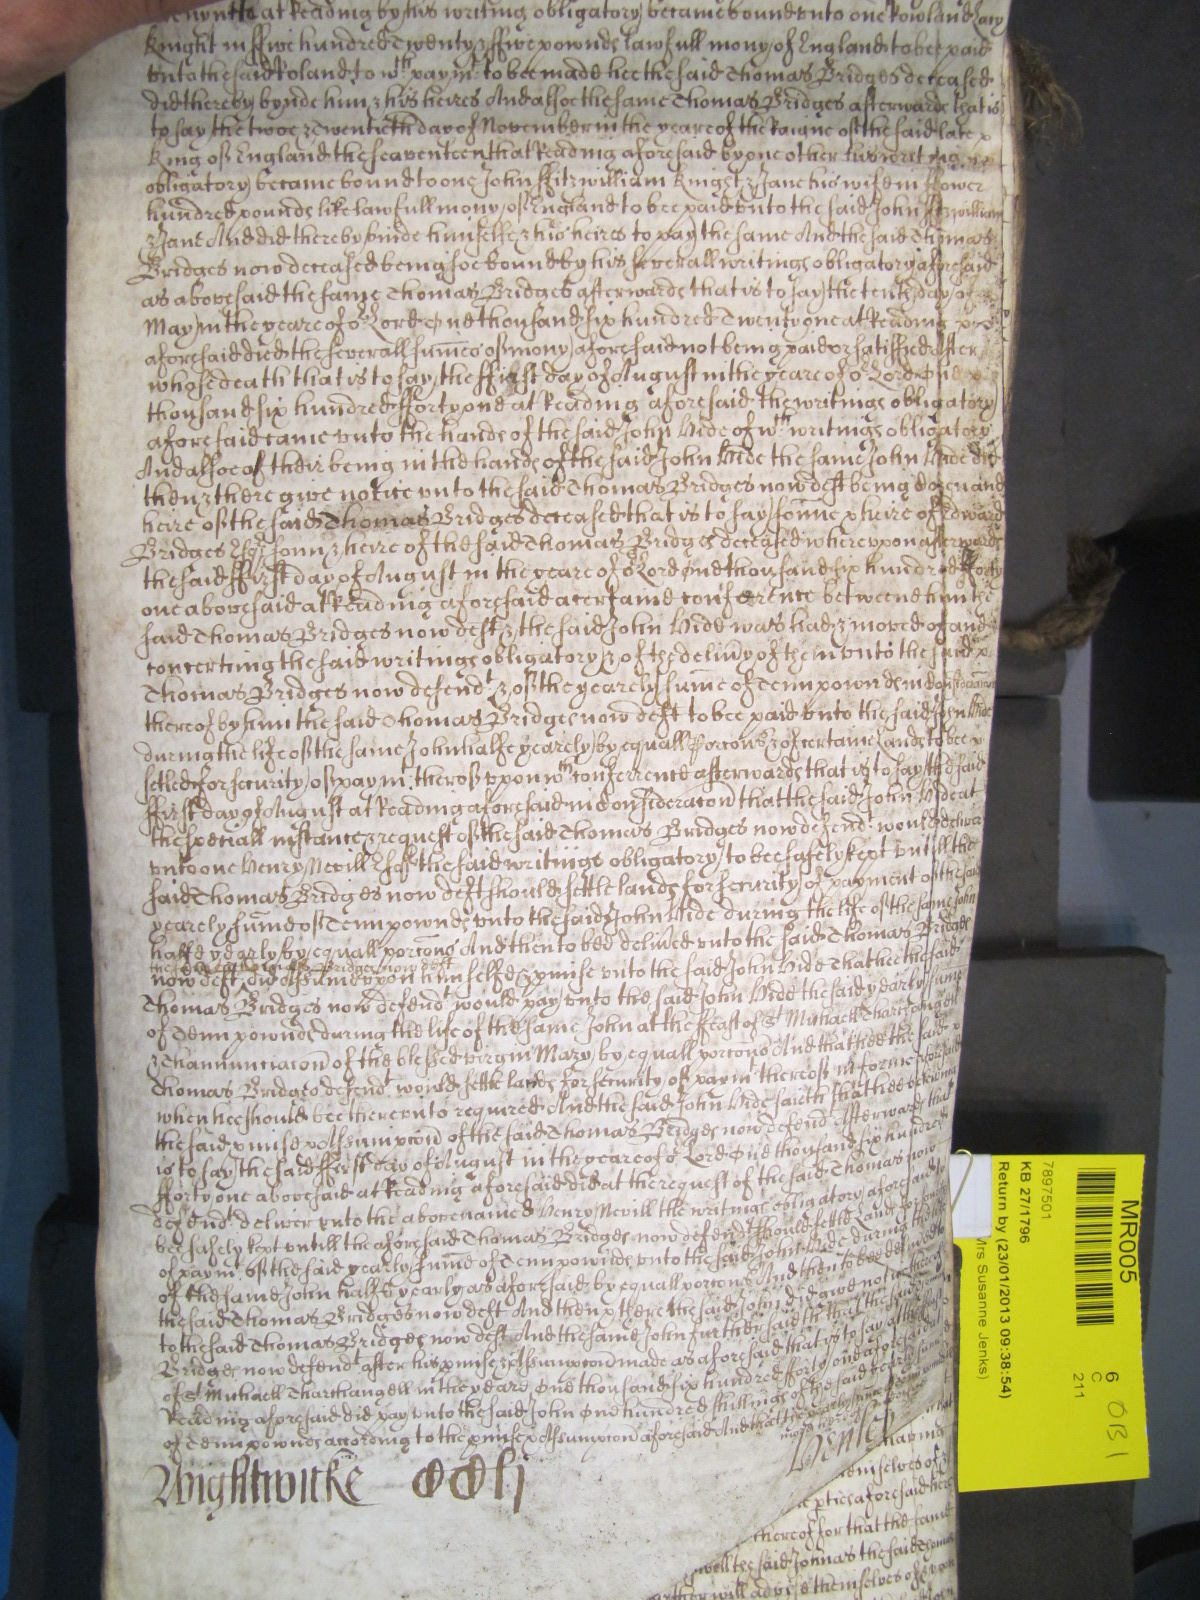 at Reading by his writing obligatory became bound unto one Rowland Lacy
Knight in ffive hundred Twenty & ffive pownds lawfull mony of England to bee paid
unto the said Roland to wch paymt to bee made hee the said Thomas Bridges deceased
did thereby bynde him & his heires And alsoe the same Thomas Bridges afterwards that is
to say the twoe & Twentieth day of November in the yeare of the Raigne of the said late
King of England the seaventeenth at Reading aforesaid by one other his writing
obligatory became bound to one John ffitzwilliam Knight & Jane his wife in ffower
hundred pounds like lawfull mony of England to bee paid unto the said John ffitzwilliam
& Jane And did thereby binde himselfe & his heires to pay the same And the said Thomas
Bridges now deceased being soe bound by his severall writings obligatory aforesaid
as abovesaid the same Thomas Bridges afterwards that is to say the tenth day of
May in the yeare of or Lord One thousand six hundred Twenty one at Reading
aforesaid died the severall sumes of mony aforesaid not being paid or satisfied After
whose death that is to say the ffirst day of August in the yeare of or Lord One
thousand six hundred fforty one at Reading aforesaid the writings obligatory
aforesaid came unto the hands of the said John Hide of wch writings obligatory
And alsoe of their being in the hands of the said John Hide the same John Hide did
then & there give notice unto the said Thomas Bridges now deft being Cozen and
heire of the said Thomas Bridges deceased that is to say sonne & heire of Edward
Bridges Esqr sonn & heire of the said Thomas Bridges deceased whereupon afterwards
the said ffirst day of August in the yeare of or Lord One thousand six hundred fforty
one abovesaid at Reading aforesaid a certaine conference betweene him the
said Thomas Bridges now deft & the said John Hide was had & moved of and
concerning the said writings obligatory & of the delivy of them unto the said
Thomas Bridges now defendt & of the yearely sume of Tenn pownds in consideracon
thereof by him the said Thomas Bridges now deft to bee paid unto the said John Hide
during the life of the same John halfe yearely by equall porcons & of certaine lands to bee
setled for security of paymt thereof uppon wch conferrence afterwards that is to say the said
ffirst day of August at Reading aforesaid in Consideracon that the said John Hide at
the speciall instance & request of the said Thomas Bridges now defendt would deliver
unto one Henry Nevill Esqr the said writings obligatory to bee safely kept untill the
said Thomas Bridges now deft should settle lands for security of payment of the said
yearely sume of Tenn pownds unto the said John Hide during the life of the same John
halfe yearly by equall porcons And then to bee delived unto the said Thomas Bridges
the said Thomas Bridges now deft
now deft did Assume upon himselfe & pmise unto the said John Hide That hee the said
Thomas Bridges now defendt would pay unto the said John Hide the said yearly sume
of Tenn pownds during the life of the same John at the ffeast of St Michaell Tharchangell
& Thannunciacon of the blessed virgin Mary by equall porcons And that hee the said
Thomas Bridges defendt would settle lands for security of paymt thereof in forme aforesaid
when hee should bee thereunto required And the said John Hide saith that hee beleiving
the said pmise & Assumpcon of the said Thomas Bridges now defendt Afterwards that
is to say the said ffirst day of August in the yeare of or Lord One thousand six hundred
fforty one abovesaid at Reading aforesaid did at the request of the said Thomas now
defendt deliver unto the abovenamed Henry Nevill the writings obligatory aforesaid to
bee safely kept untill the aforesaid Thomas Bridges now defendt should settle Lands for security
of paymt of the said yearly sume of Tenn pownds unto the said John Hide during the life
of the same John halfe yearly as aforesaid by equall porcons And then to bee delived to
the said Thomas Bridges now deft And then & there the said John did give notice thereof
to the said Thomas Bridges now deft And the same John further saith that the said Thomas
Bridges now defendt after his pmise & Assumpcon made as aforesaid that is to say at the feast
of St Michaell Tharchangell in the yeare One thousand six hundred fforty one aforesaid at
Reading aforesaid did pay unto the said John One hundred shillings of the said yearly sume
of Tenn pownds according to the pmise & Assumpcon aforesaid And that the yearly sume
Wightwicke
Henley
having
themselves of
pties aforesaid here
thereof for that the same
well the said John as the said Thomas
further will advise themselves of & upon
MR005
6
C
211
OB 1
7897501
KB 27/1796
Return by (23/01/2013 09:38:54)
Mrs Susanne Jenks)